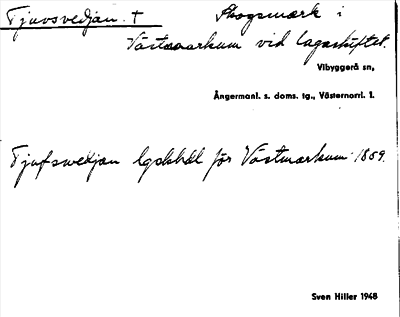 Tjuvsvedjan. † Skogsmark i
Västmarkum vid lagaskiftet.
Vibyggerå sn,
Ångermanl. s. doms. tg., Västernorrl. l.
Tjufswedjan lgdskbl för Västmarkum 1859.
Sven Hiller 1948